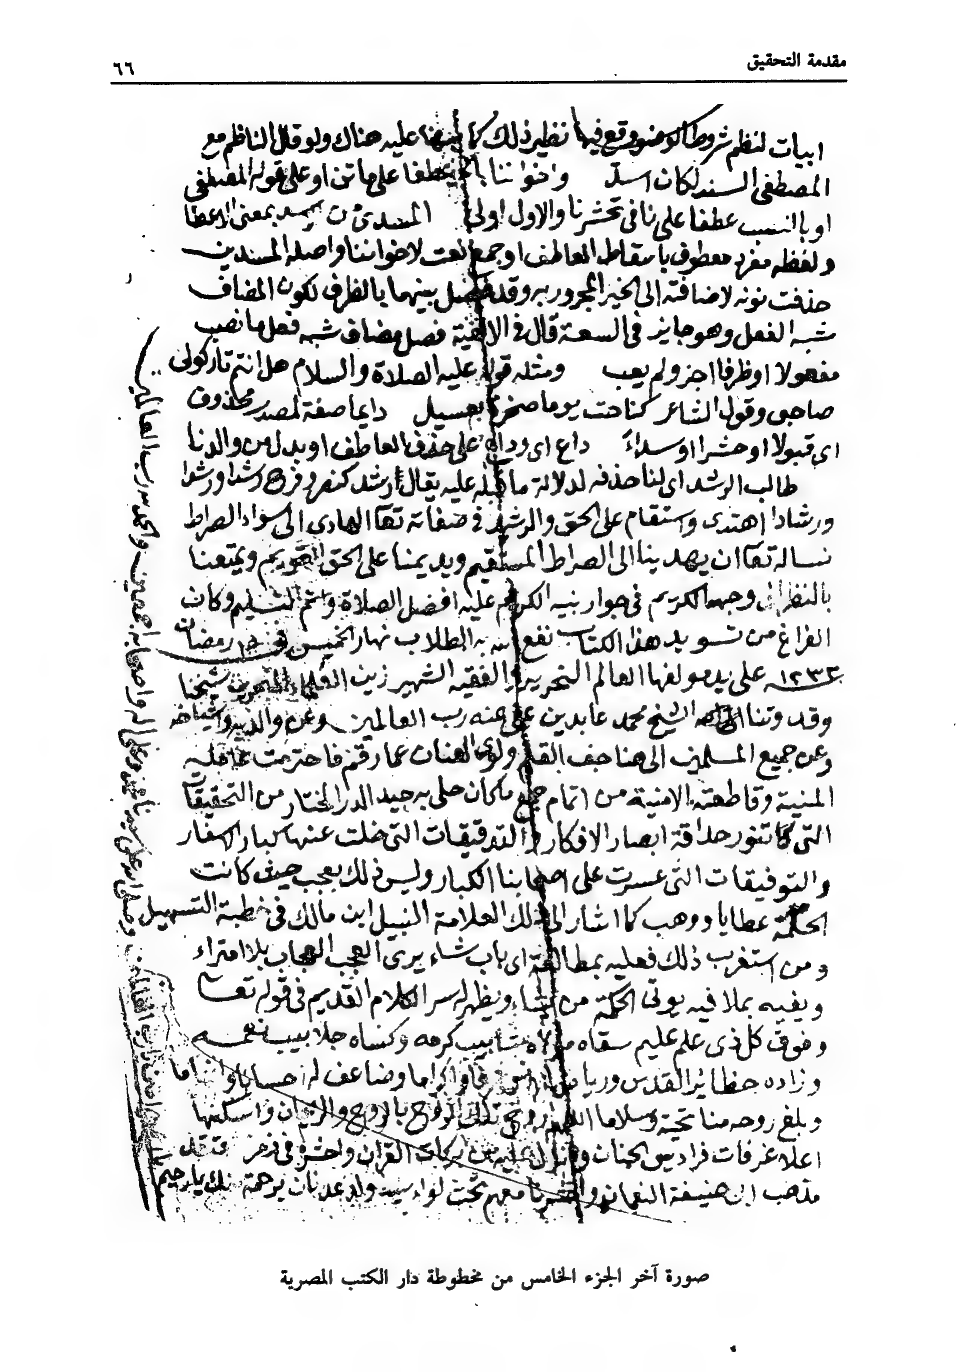 مقدمة التحقيق
٦٦
ابيات لنظم شروطا كالوضو وقع فيها نظير ذلك كما عليه هناك ولو قال الناظم مع
المصطفى السند لكان اسد واخواننا بالجر عطفا على ما تن او على قوله المصطفى
او بالنصب عطفا على نا فى تحشرنا والاول اولى المسدى بمعنى الاعطا
ولفظه مفرد معطوف باسقاط العاطف او جمع نعت لاخواننا واصله المسندين
حذفت نونه لاضافته الى الخير المجرور به وقد فصل بينهما بالظرف لكون المضاف
شبه الفعل وهو جايز فى السعة قال فى الالفية فصل مضاف شبه فعل ما نصب
مفعولا او ظرفا اجز ولم يعب ومثله قوله عليه الصلاة والسلام هل انتم تاركولى
صاحبى وقول الشاعر كناحت يوما صخرة بعسيل دايما صفة لمصدر محذوف
اى قبولا او حشرا او سداً داع اى وداع على حذف العاطف او بدل من والدنا
طالب الرشد اى لنا حذفه لدلالة ما قبله عليه يقال أرشد كنصر وفرح رشدا ورشدا
ورشادا اهتدى واستقام على الحق والرشد فى صفاته تعا الهادى الى سواء الصراط
نساله تعا ان يهدينا الى الصراط المستقيم ويديمنا على الحق القويم ويمتعنا
بالنظر الى وجهه الكريم فى جوار نبيه الكريم عليه افضل الصلاة واتم التسليم وكان
الفراغ من تسويد هذا الكتاب نفع الله به الطلاب نهار الخميس فى رمضان
١٢٣٢ على يد مولفها العالم النحرير والفقيه الشهير زين شيخنا
وقدوتنا الشيخ محمد عابدين عفى عنه رب العالمين وعن والديه واشياخه
وعن جميع المسلمين الى هنا جف القلم ولوى العنان عما رقم فاخترمت عاجله
المنية وقاطعته الامنية من اتمام جمع ما كان حلى به جيد الدر المختار من التحقيقات
التى كا تنور حداقة ابصار الافكار والتدقيقات التى خلت عنها كبار الاسفار
والتوفيقات التى عسرت على اصحابنا الكبار وليس ذلك بعجب حيث كانت
الحكمة عطايا ووهب كما اشار الى ذلك العلامة النبيل ابن مالك فى خطبة التسهيل
ومن استغرب ذلك فعليه بمطالعة اى باب شاء يرى العجب العجاب بلا افتراء
ويفيه بملا فيه يوتى الحكمة من يشاء ويظهر له سر الكلام القديم فى قوله تعا
وفوق كل ذى علم عليم سقاه مولاه شابيب كرمه وكساه جلابيب نعمه
وزاده حظائر القدس ورياض واكراما وضاعف له احسانا
وبلغ روحه منا تحية وسلاما اللهم روح تلك الروح بالروح والريحان واسكنها
اعلا غرفات فراديس الجنان وانزل عليه من بركات القران واحشره فى زمرة
مذهب ابى حنيفة النعمان واحشرنا معهم تحت لواء سيد ولد عدنان برحمتك يارحيم
والحمد لله رب العالمين
وعلى اله واصحابه اجمعين
صورة آخر الجزء الخامس من مخطوطة دار الكتب المصرية